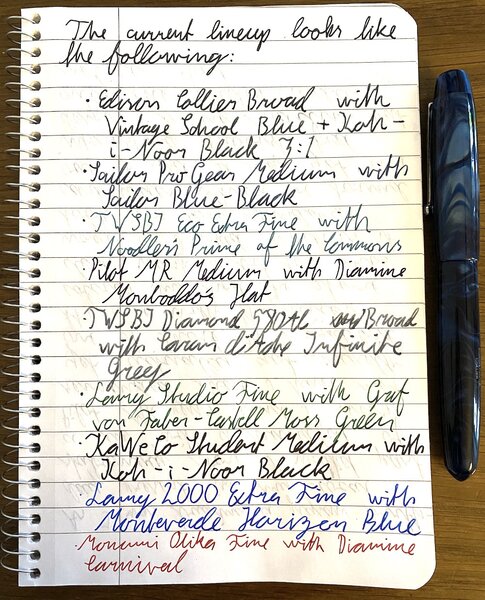 The current lineup looks like
the following:
· Edison Collier Broad with
Vintage School Blue + Koh-
i-Noor Black 3:1
· Sailor Pro Gear Medium with
Sailor Blue-Black
· TWSBI Eco Extra Fine with
Noodler's Prime of the Commons
· Pilot MR Medium with Diamine
Monboddo's Hat
· TWSBI Diamond 580AL Broad
with Caran d'Ache Infinite
Grey
· Lamy Studio Fine with Graf
von Faber-Castell Moss Green
· KaWeCo Student Medium with
Koh-i-Noor Black
· Lamy 2000 Extra Fine with
Monteverde Horizon Blue
Monami Olika Fine with Diamine
Carnival